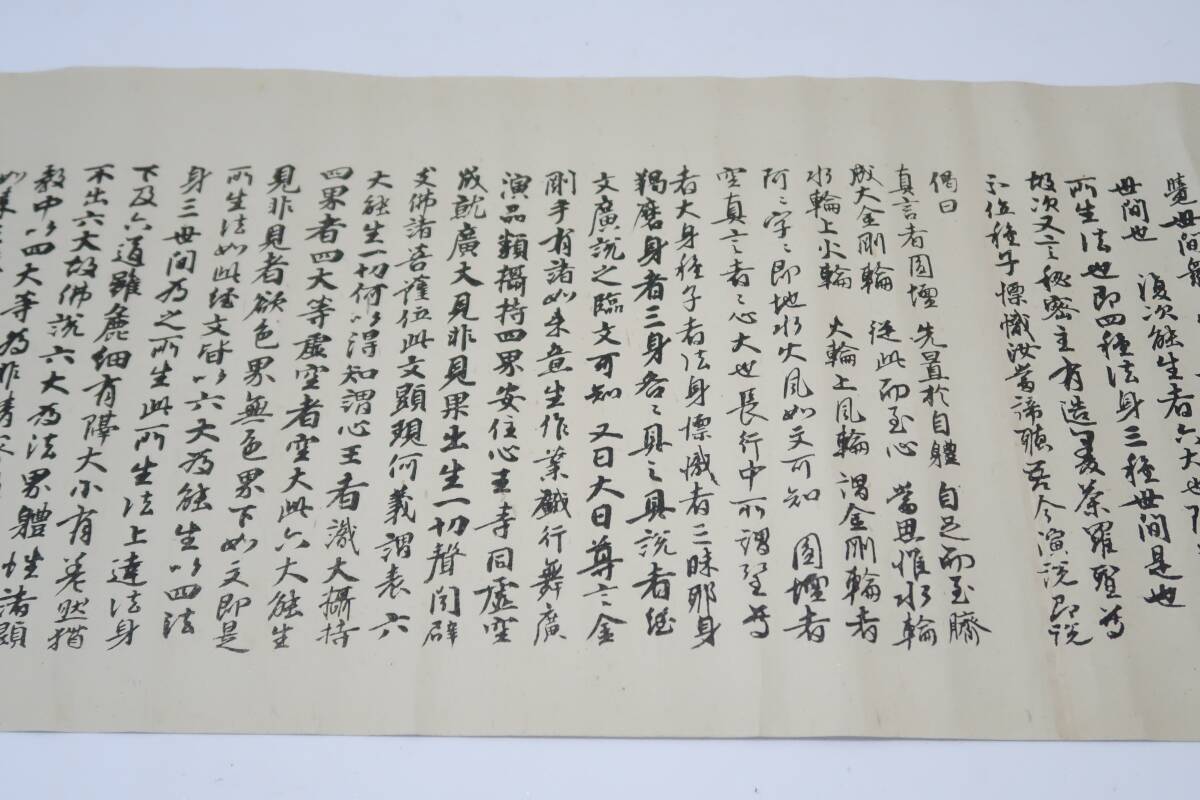 覺世間
世間也 復次能生者六大也
所生法也即四種法身三種世間是也
故次又言秘密主有造曼荼羅聖尊
分位種子幖幟汝當諦聽吾今演説即説
偈曰
真言者圓壇 先置於自體 自足而至臍
成大金剛輪 從此而至心 當思惟水輪
水輪上火輪 火輪上風輪 謂金剛輪者
阿〻字〻即地水火風如文可知 圓壇者
空真言者〻心大也長行中所謂聖尊
者大身種子者法身幖幟者三昧耶身
羯磨身者三身各〻具之具説者經
文廣説之臨文可知 又曰大日尊言金
剛手有諸如来意生作業戯行舞廣
演品類攝持四界安住心王等同虚空
成就廣大見非見果出生一切聲聞辟
支佛諸菩薩位此文顕現何義謂表六
大能生一切何以得知謂心王者識大攝持
四界者四大等虚空者空大此六大能生
見非見者欲色界無色界下如文即是
所生法如此経文皆以六大為能生以四法
身三世間為之所生此所生法上達法身
下及六道雖麁細有隔大小有差然猶
不出六大故佛説六大為法界體性諸顕
教中以四大等為非情
如来